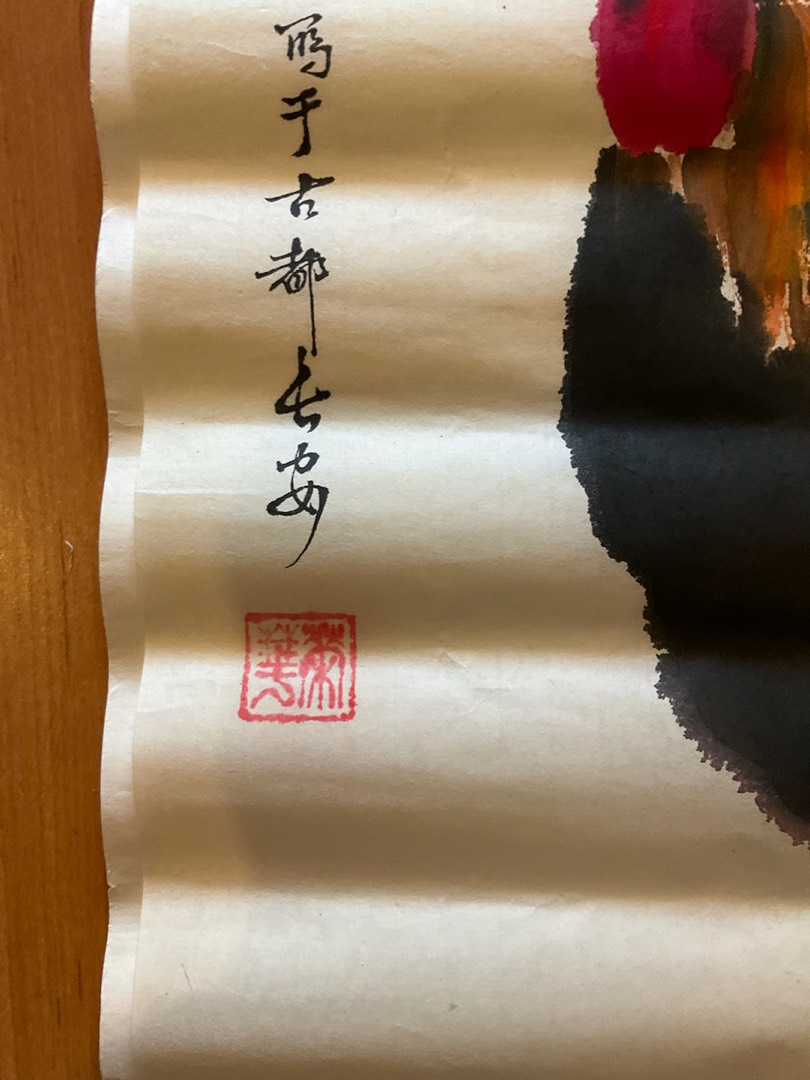 寫于古都长安